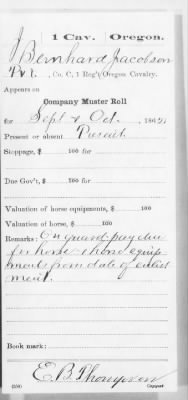 J | 1 Cav. | Oregon.
Bernhard Jacobson
Pvt., Co. C, 1 Reg't Oregon Cavalry.
Appears on
Company Muster Roll
for Sept & Oct, 186
Present or absent Present
Stoppage, $ 100 for
Due Gov't, $ 100 for
Valuation of horse equipments, $ 100
Valuation of horse, $ 100
Remarks: On guard pay due
for horse & horse equip
ments from date of enlist
ment.
Book mark:
E. B. Thompson
(358) Copyist.